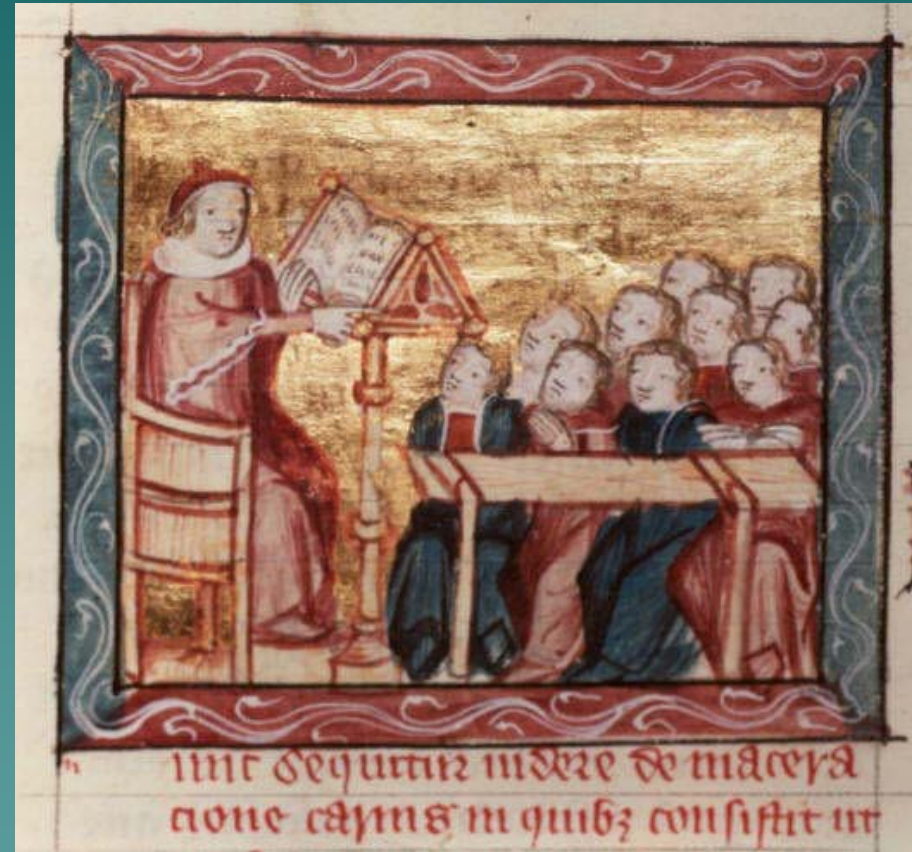 n unc sequitur uidere de macera
cione carnis in quibꝫ consistit ut